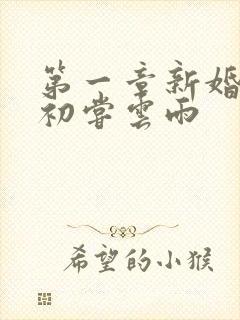 第一章新婚
初尝雲雨
希望的小猴